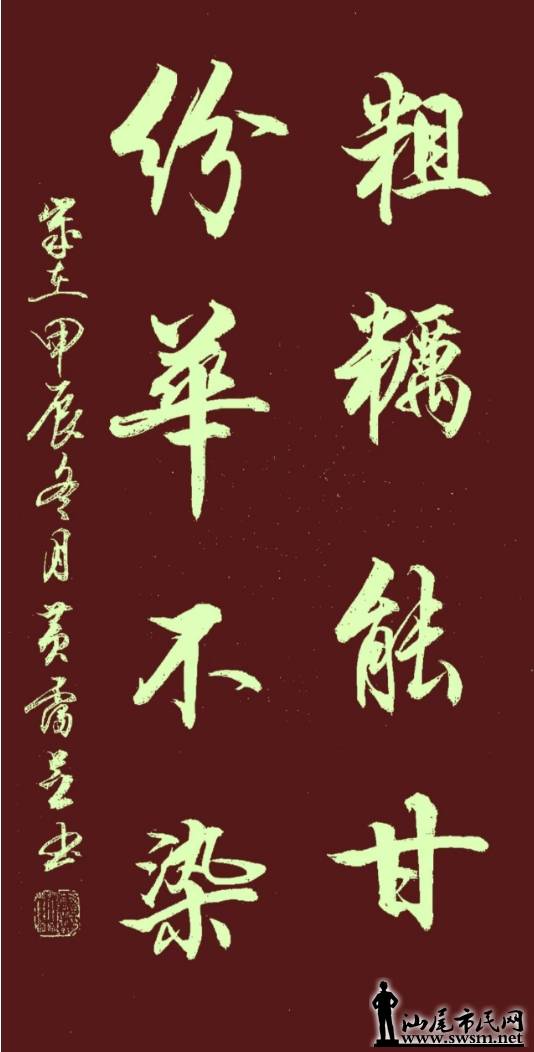 粗糲能甘
纷華不染
歲在甲辰冬月黄
书
汕尾市民网
www.swsm.net